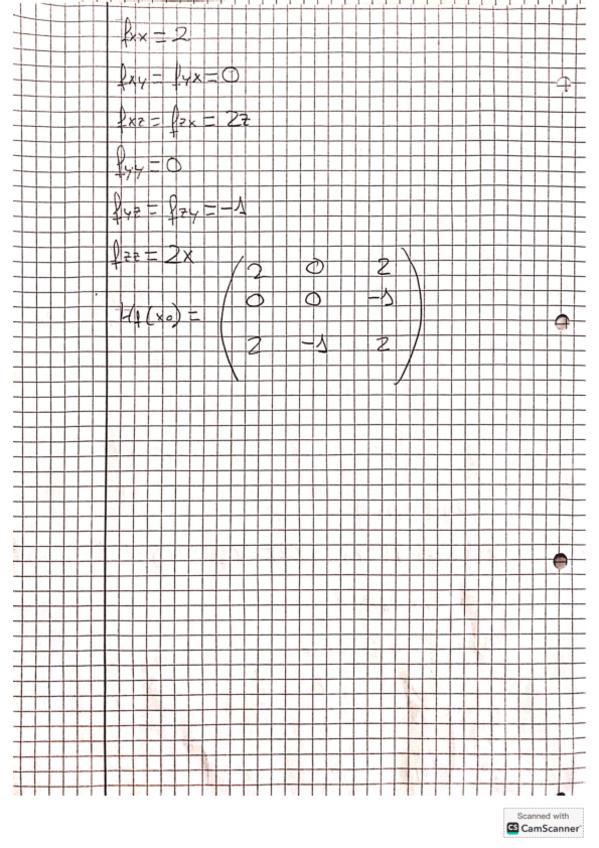 fxx = 2
fxy = fyx = 0
fxz = fzx = 2z
fyy = 0
fyz = fzy = -1
fzz = 2x
Hf(x0) =
2 0 2
0 0 -1
2 -1 2
Scanned with
CS CamScanner